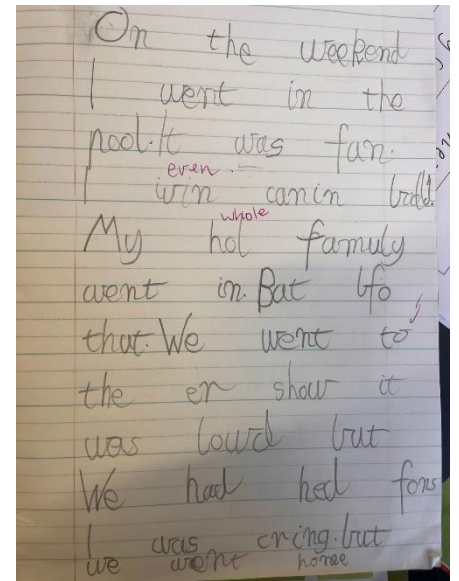 On the weekend
I went in the
pool. It was fun.
even
I win canin ball.
whole
My hol famuly
went in. Bat bfo
that. We went to
the er show it
was lowd but
We had hed fons
I was cring. but
we went home